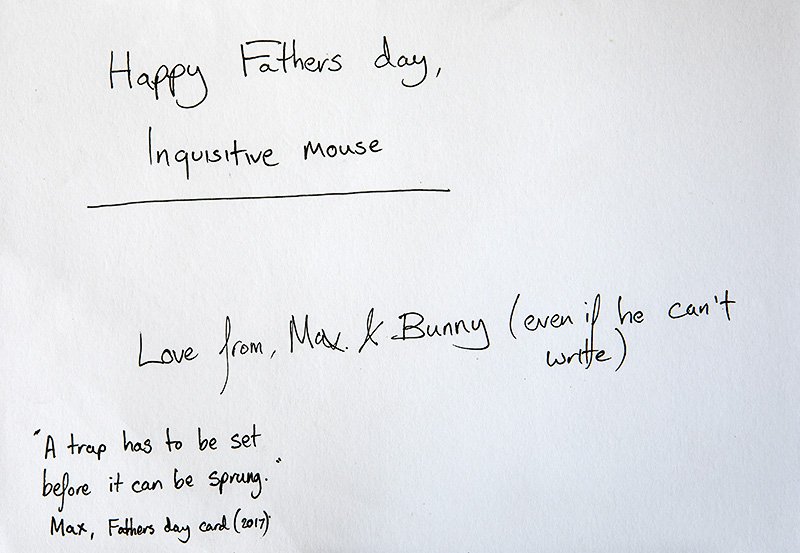 Happy Fathers day,
Inquisitive mouse
Love from, Max. & Bunny (even if he can't
write)
"A trap has to be set
before it can be sprung."
Max, Fathers day card (2017)